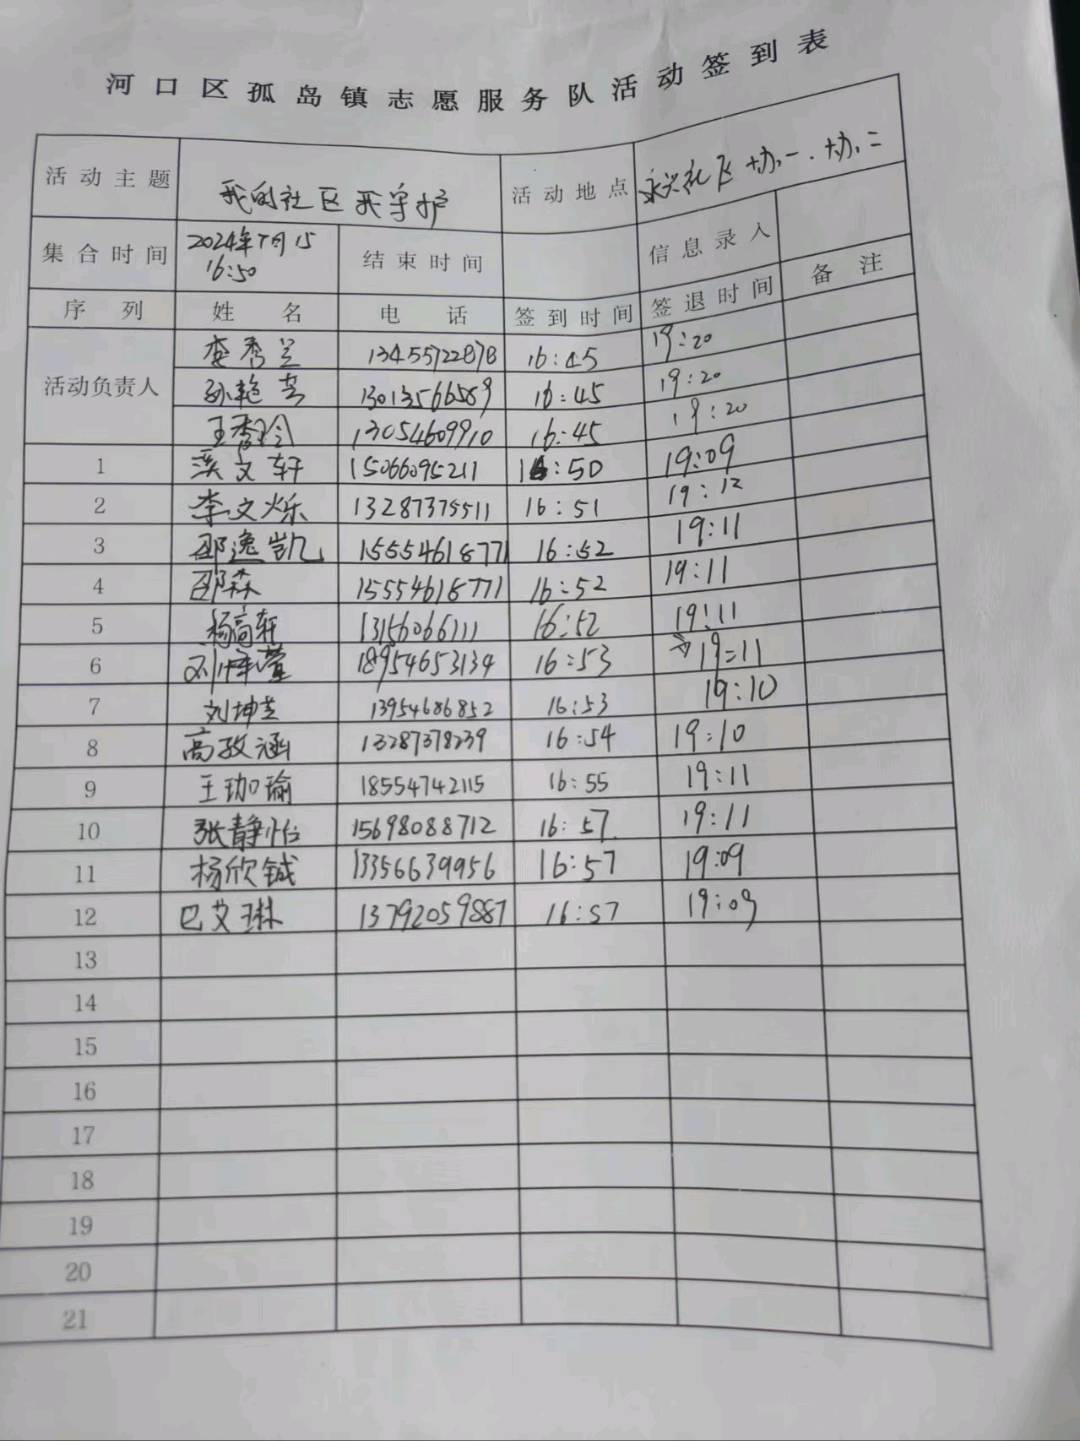 河口区孤岛镇志愿服务队活动签到表
活动主题 我的社区我守护 活动地点 永兴社区 协一.协二
集合时间 2024年7月15 16:50 结束时间 信息录入
序列 姓名 电话 签到时间 签退时间 备注
活动负责人
李秀兰 13455722878 16:45 19:20
孙艳芸 13013566589 16:45 19:20
王秀玲 13054609910 16:45 19:20
1 文轩 15066095211 16:50 19:09
2 李文烁 13287375511 16:51 19:12
3 邵逸凯 15554618771 16:52 19:11
4 邵森 15554618771 16:52 19:11
5 杨高轩 13156066111 16:52 19:11
6 刘 萱 18954653134 16:53 19:11
7 刘坤芝 13954686852 16:53 19:10
8 高孜涵 13287378239 16:54 19:10
9 王珈瑜 18554742115 16:55 19:11
10 张静怡 15698088712 16:57 19:11
11 杨欣铖 13356639956 16:57 19:09
12 巴艾琳 13792059887 16:57 19:09
13
14
15
16
17
18
19
20
21